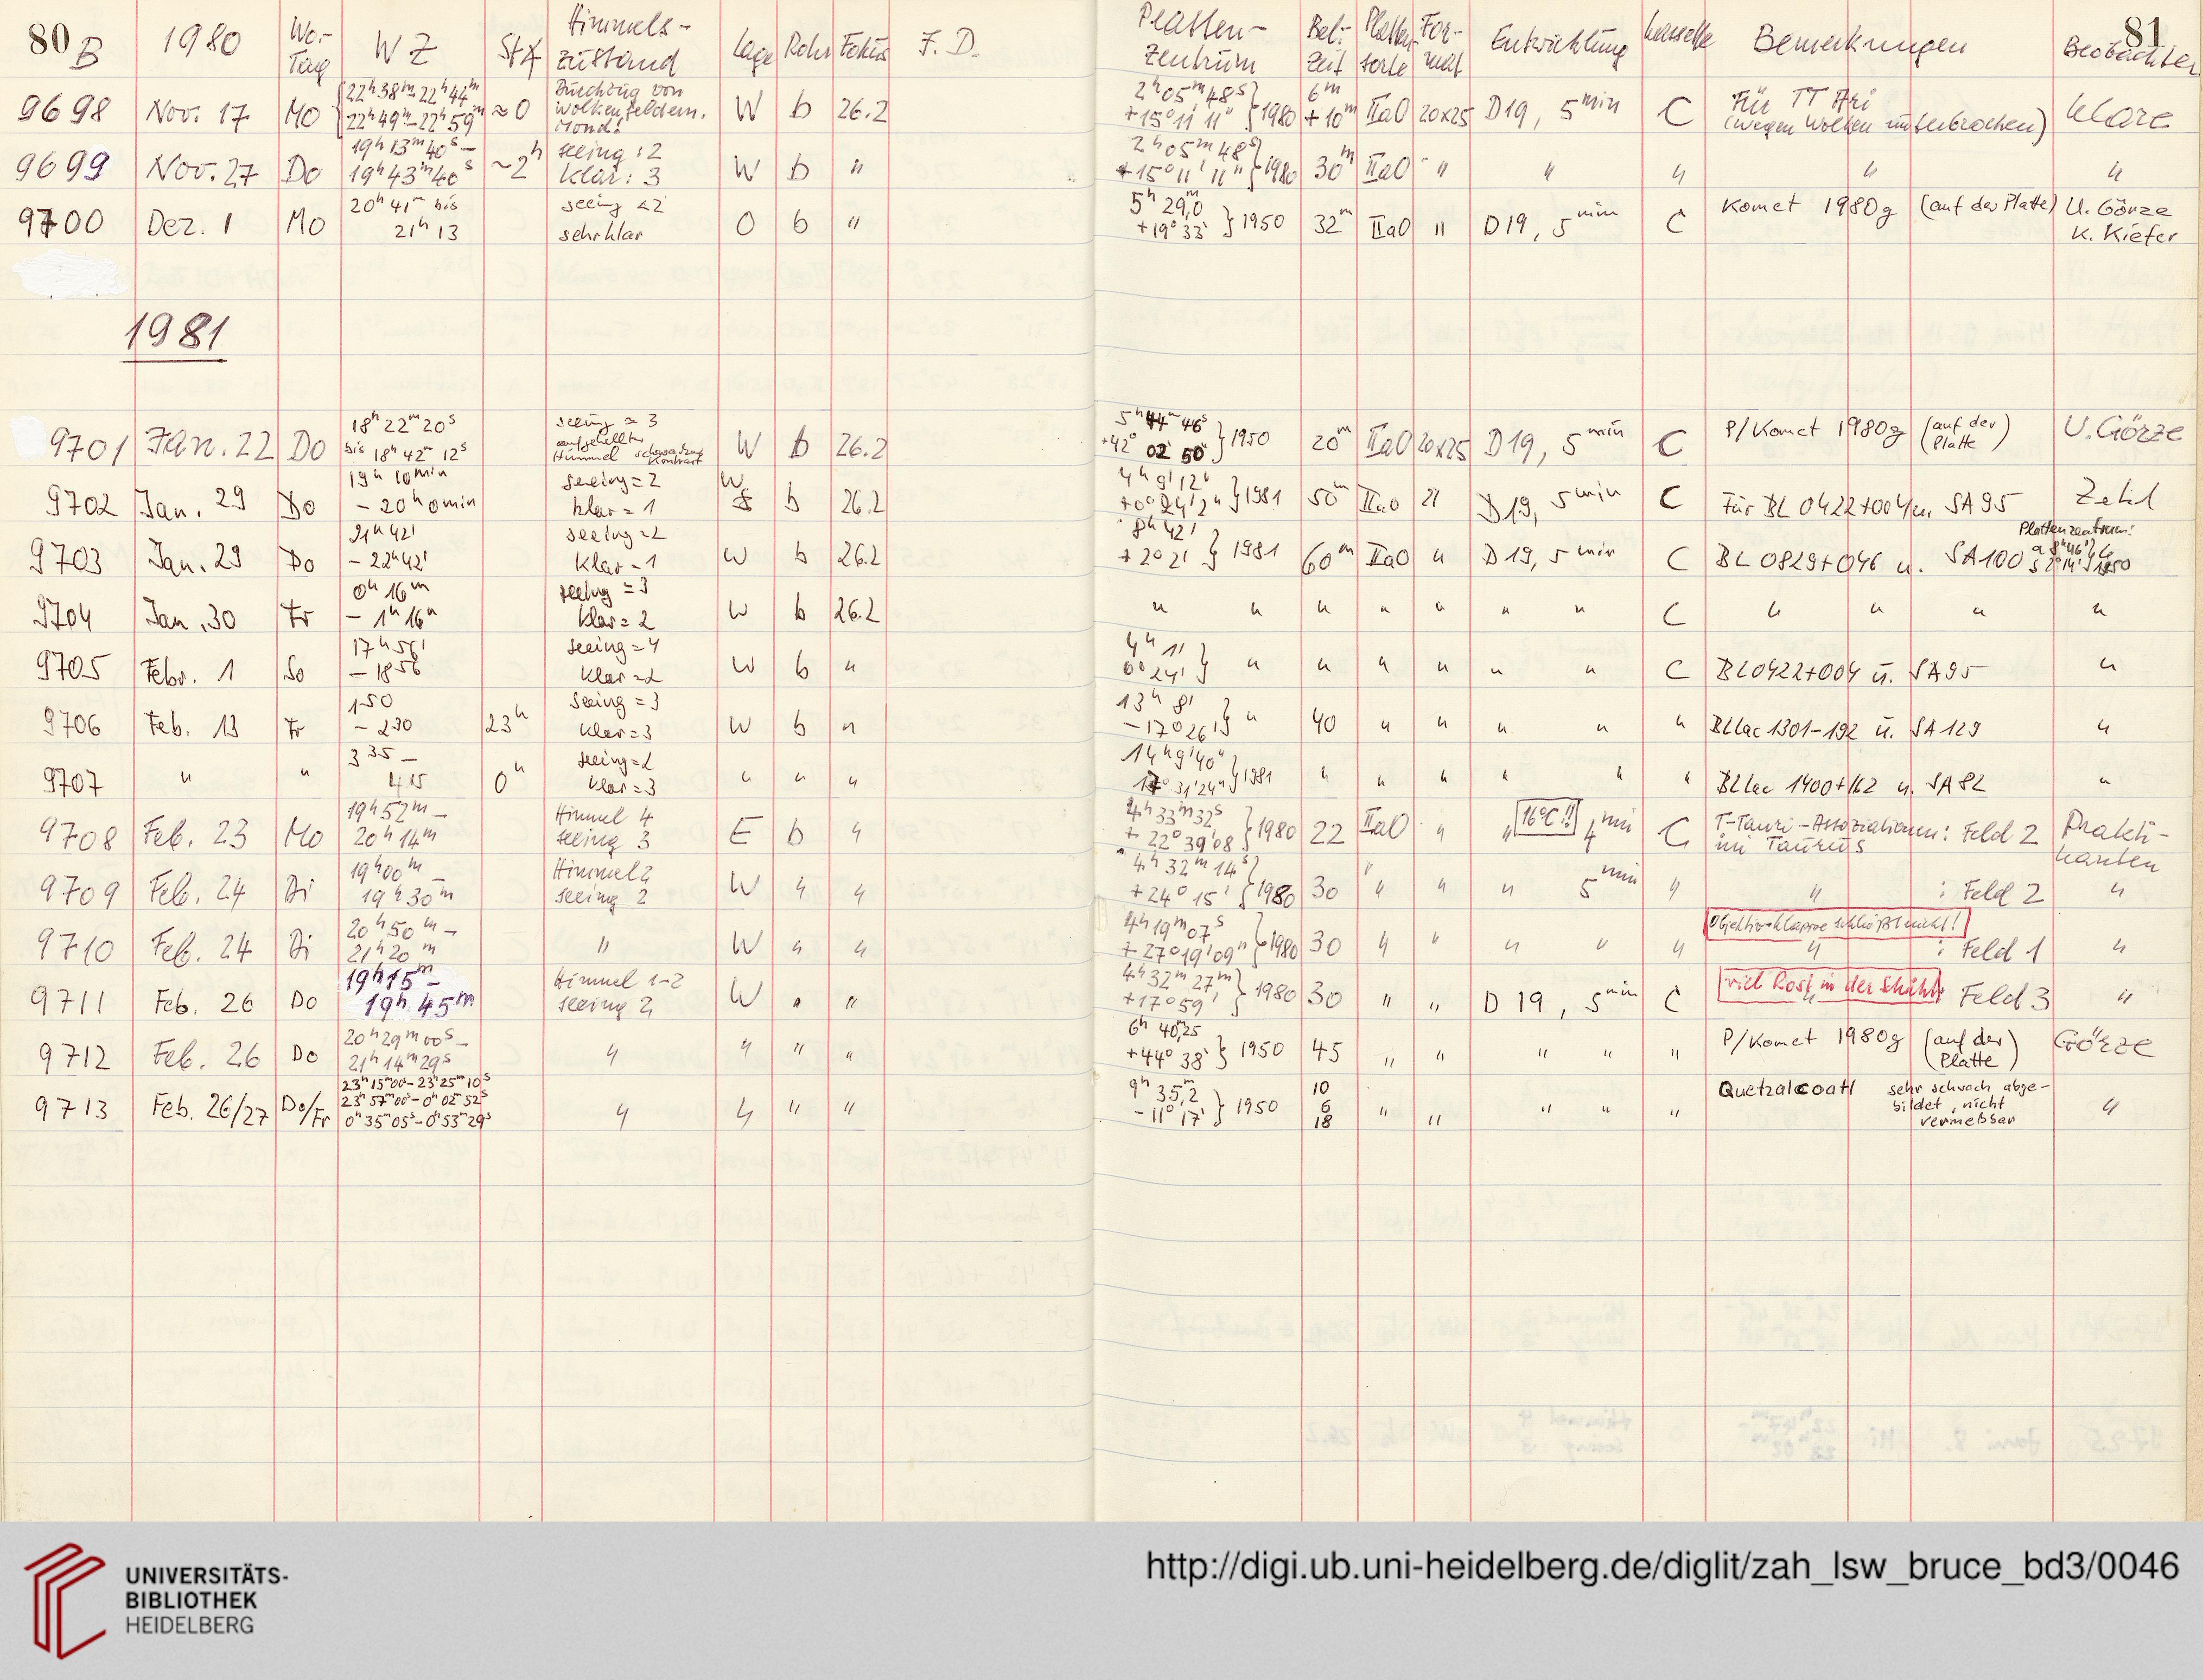 80 81
B 1980 Wo.-Tag WZ St∢ Himmels-zustand Lage Rohr Fokus F. D. Platten-zentrum Bel.-Zeit Platten-sorte For-mat Entwicklung Kassette Bemerkungen Beobachter
9698 Nov. 17 Mo { 22h 38m-22h 44m 22h 49m-22h 59m ≈0 Durchzug von Wolkenfeldern. Mond! W b 26.2 2h 05m 48s +15° 11' 11" } 1980 6m + 10m IIaO 20x25 D19, 5min C Für TT Ari (wegen Wolken unterbrochen) Klare
9699 Nov. 27 Do 19h 13m 40s - 19h 43m 40s ~2h seeing : 2 klar : 3 W b " 2h 05m 48s +15° 11' 11" } 1980 30m IIaO " " " " "
9700 Dez. 1 Mo 20h 41m bis 21h 13 seeing <2 sehr klar O b " 5h 29,0m +19° 33' } 1950 32m IIaO " D19, 5min C Komet 1980g (auf der Platte) U. Görze K. Kiefer
1981
9701 Jan. 22 Do 18h 22m 20s bis 18h 42m 12s seeing ≈ 3 aufgehellter Himmel W b 26.2 5h 44m 46s +42° 02' 50" } 1950 20m IIaO 20x25 D19, 5min C P/Komet 1980g (auf der Platte) U. Görze
9702 Jan. 29 Do 19h 10min - 20h 0min seeing=2 klar=1 W b 26.2 4h 9' 12" +0° 24' 2" } 1981 50m IIaO " D19, 5min C Für BL 0422+004 u. SA95 Zekl
9703 Jan. 29 Do 21h 42' - 22h 42' seeing=2 klar=1 W b 26.2 8h 42' +2° 21' } 1981 60m IIaO " D19, 5min C BL 0829+046 u. SA100 Plattenzentrum: α 8h 46' δ 2° 14' } 1950
9704 Jan. 30 Fr 0h 16m - 1h 16m seeing=3 klar=2 W b 26.2 " " " " " " " C " " " "
9705 Febr. 1 So 17h 56' - 18 56 seeing=4 klar=2 W b " 4h 11' 0° 24' } " " " " " " C BL0422+004 u. SA95 "
9706 Feb. 13 Fr 150 - 230 23h seeing=3 klar=3 W b " 13h 8' -17° 26' } " 40 " " " " " BLlac 1301-192 u. SA129 "
9707 " " 3 35 - 4 15 0h seeing=2 klar=3 " " " 14h 9' 40" 17° 31' 24" } 1981 " " " " " " BLlac 1400+162 u. SA82 "
9708 Feb. 23 Mo 19h 52m - 20h 14m Himmel 4 seeing 3 E b " 4h 33m 32s + 22° 39' 08 } 1980 22 IIaO " " 16°C!! 4min C T-Tauri-Assoziationen: Feld 2 im Taurus Praktikanten
9709 Feb. 24 Di 19h 00m - 19h 30m Himmel 2 seeing 2 W " " 4h 32m 14s +24° 15' } 1980 30 " " " 5min " " : Feld 2 "
9710 Feb. 24 Di 20h 50m - 21h 20m " W " " 4h 19m 07s + 27° 19' 09" } 1980 30 " " " " " Objektivklappe schließt nicht! " : Feld 1 "
9711 Feb. 26 Do 19h 15m - 19h 45m Himmel 1-2 seeing 2 W " " 4h 32m 27m +17° 59' } 1980 30 " " D 19, 5min C viel Rost in der Schicht " : Feld 3 "
9712 Feb. 26 Do 20h 29m 00s - 21h 14m 29s " " " " 6h 40m,25 +44° 38' } 1950 45 " " " " " P/Komet 1980g (auf der Platte) Görze
9713 Feb. 26/27 Do/Fr 23h 15m 00s - 23h 25m 10s 23h 57m 00s - 0h 02m 52s 0h 35m 05s - 0h 53m 29s " " " " 9h 35,2m -11° 17' } 1950 10 6 18 " " " " " Quetzalcoatl sehr schwach abge-bildet, nicht vermeßbar "
UNIVERSITÄTS-
BIBLIOTHEK
HEIDELBERG
http://digi.ub.uni-heidelberg.de/diglit/zah_lsw_bruce_bd3/0046